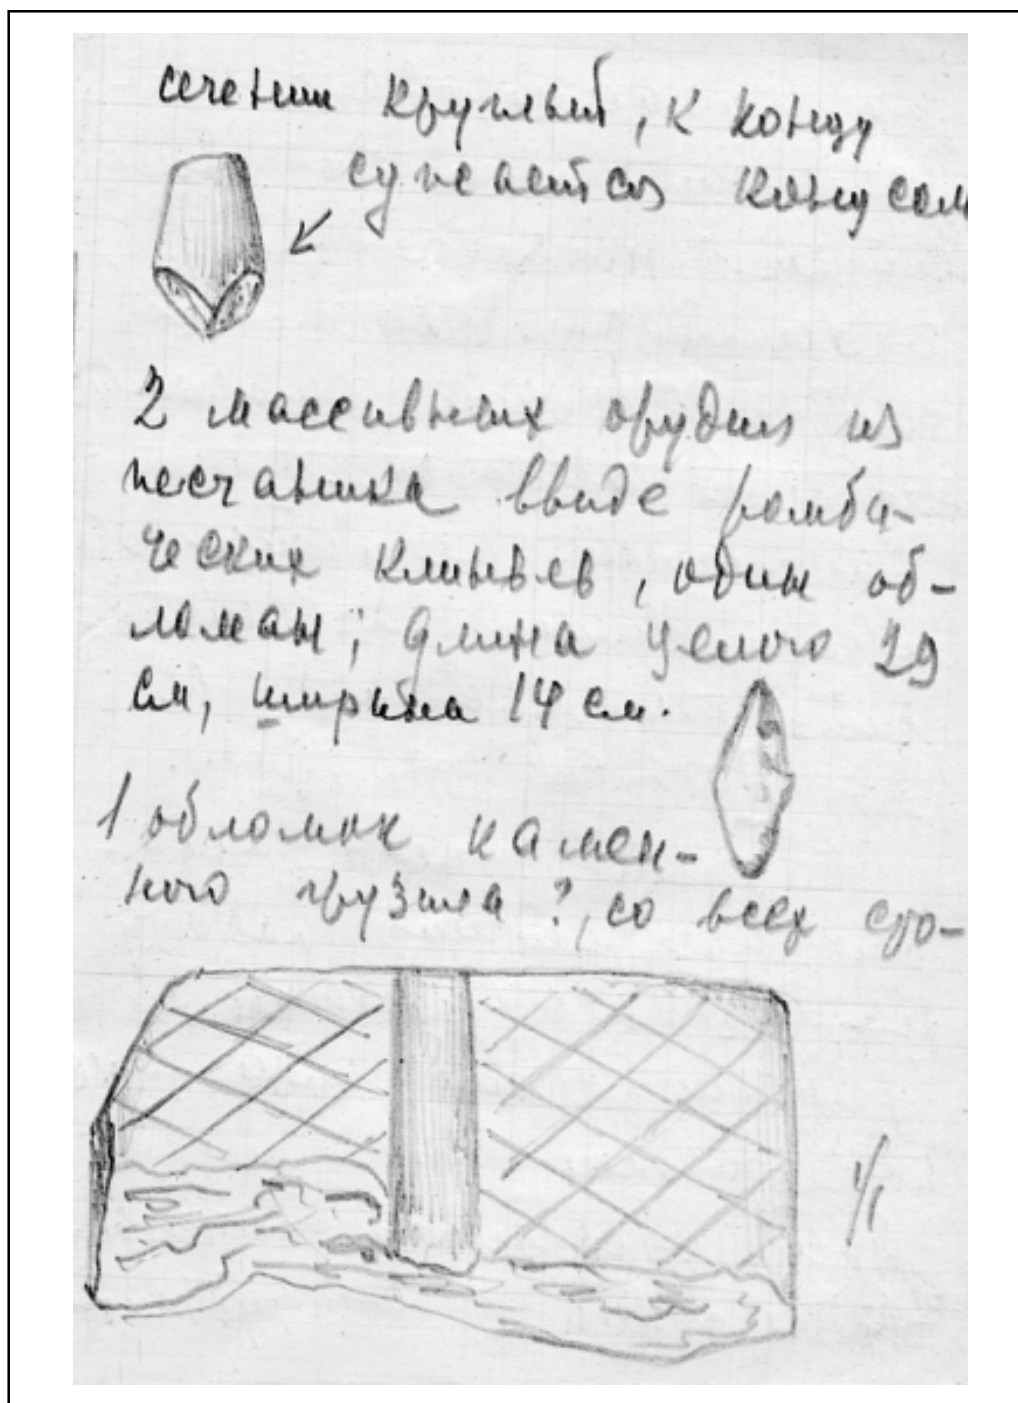 сечении круглый, к концу
сужается конусом
2 массивных орудия из
песчаника ввиде ромби-
ческих клиньев, один об-
ломан; длина целого 29
см, ширина 14 см.
1 обломок камен-
ного грузила ?, со всех сто-
1/1